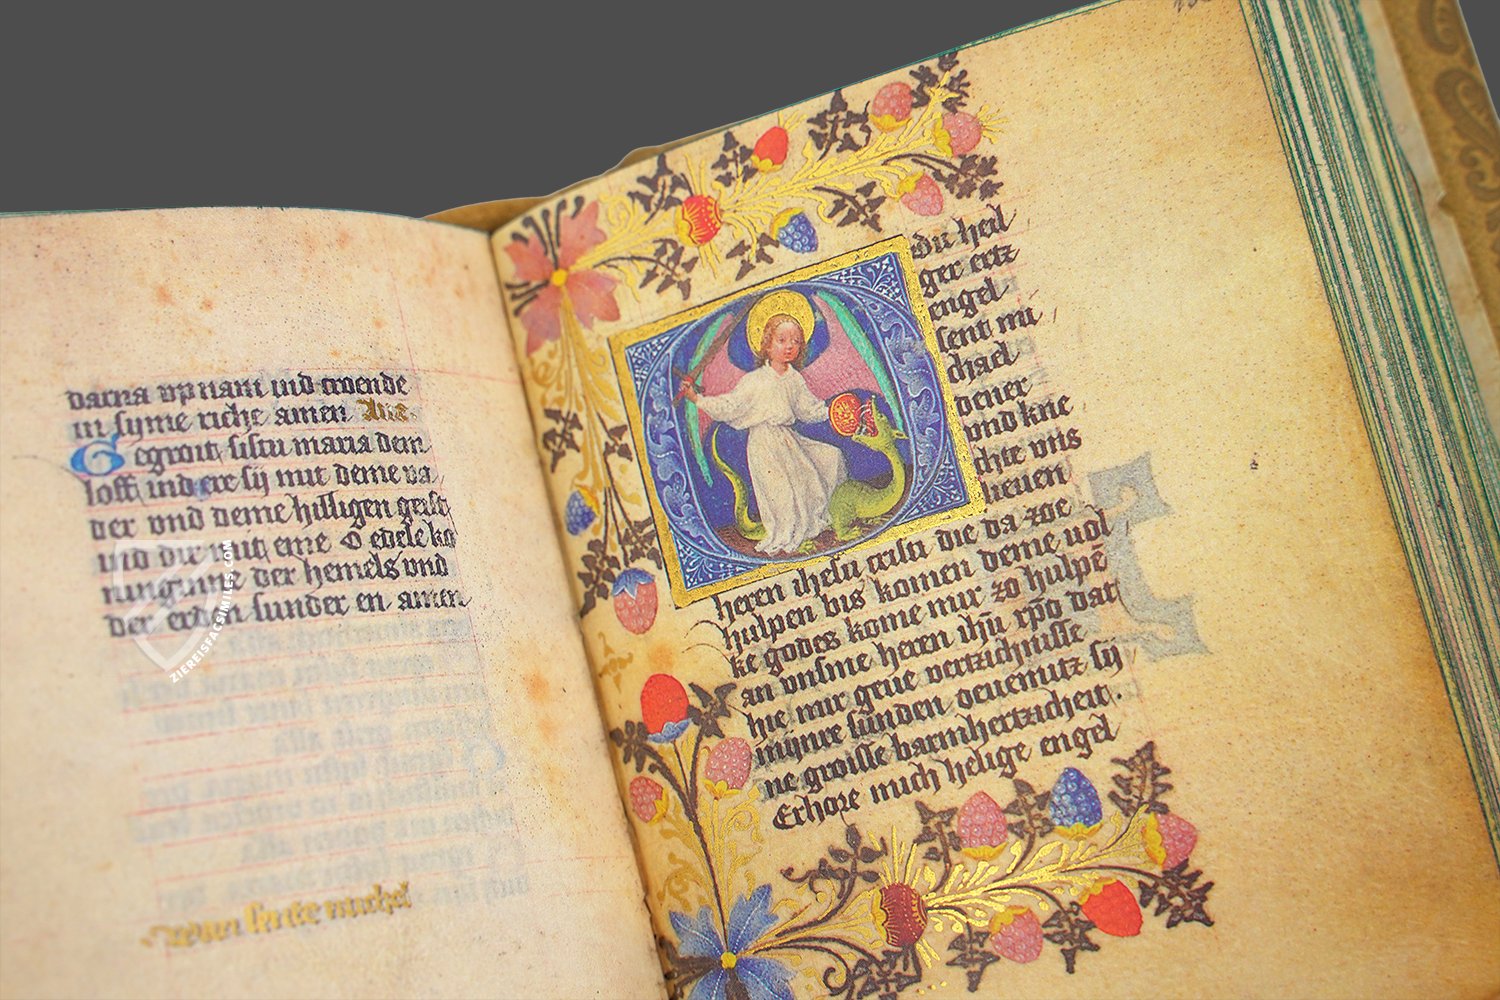 darna vp nam vnd troende
in syme riche amen
Gegroit sistu maria dem
loff ind ere sij mit deme va
der vnd deme hilligen geist
vnd die mit eme O edele ko
ninginne der hemels vnd
der erden sunder en amen
van sente michel
du heil
ger ertz
engel
sent mi
chael
dener
vnd knie
chte vns
lieuen
heren ihesu cristu die da zoe
hulpen bis komen deme uol
ke godes kome mir zo hulpe
an vnsme heren ihu xpo dat
hie mir geue vertzichnisse
mijnre sunden ouermitz sij
ne groisse barmhertzicheit.
Erhore mich helige engel
ZIEREISFACSIMILES.COM